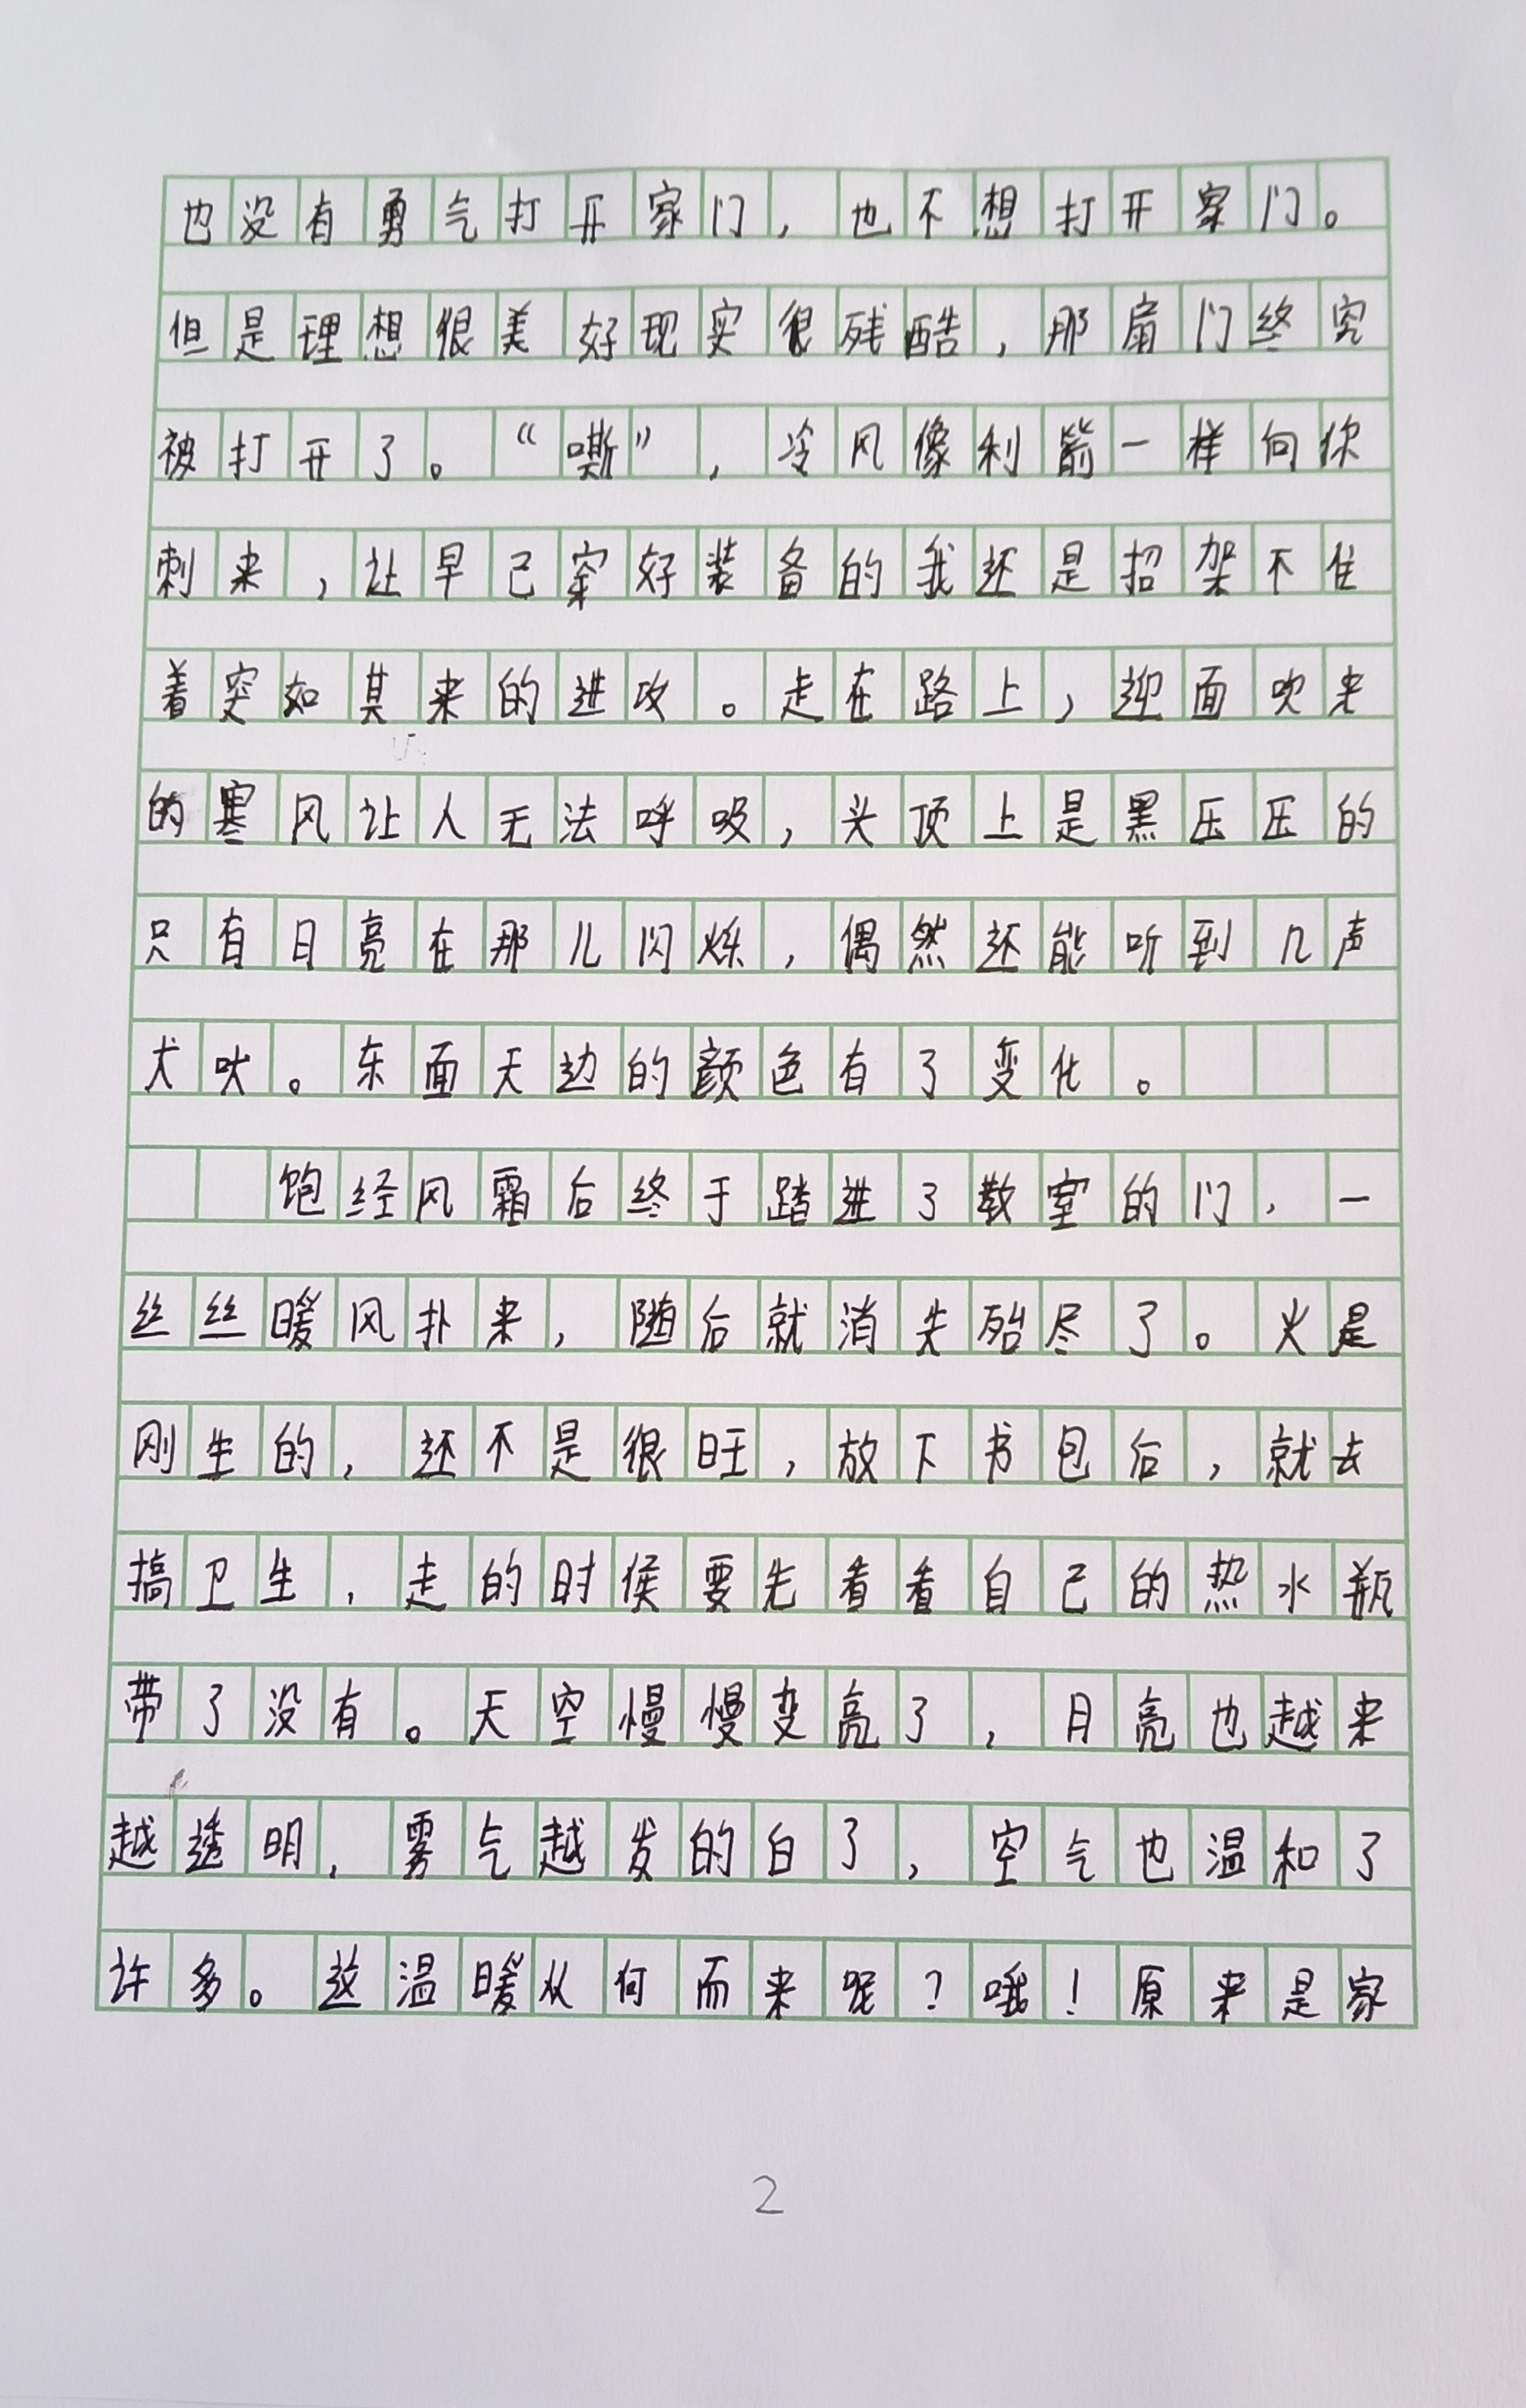 也没有勇气打开家门，也不想打开家门。
但是理想很美好现实很残酷，那扇门终究
被打开了。“嘶”，冷风像利箭一样向你
刺来，让早已穿好装备的我还是招架不住
着突如其来的进攻。走在路上，迎面吹来
的寒风让人无法呼吸，头顶上是黑压压的
只有日亮在那儿闪烁，偶然还能听到几声
犬吠。东面天边的颜色有了变化。
饱经风霜后终于踏进了教室的门，一
丝丝暖风扑来，随后就消失殆尽了。火是
刚生的，还不是很旺，放下书包后，就去
搞卫生，走的时侯要先看看自己的热水瓶
带了没有。天空慢慢变亮了，月亮也越来
越透明，雾气越发的白了，空气也温和了
许多。这温暖从何而来呢？哦！原来是家
2